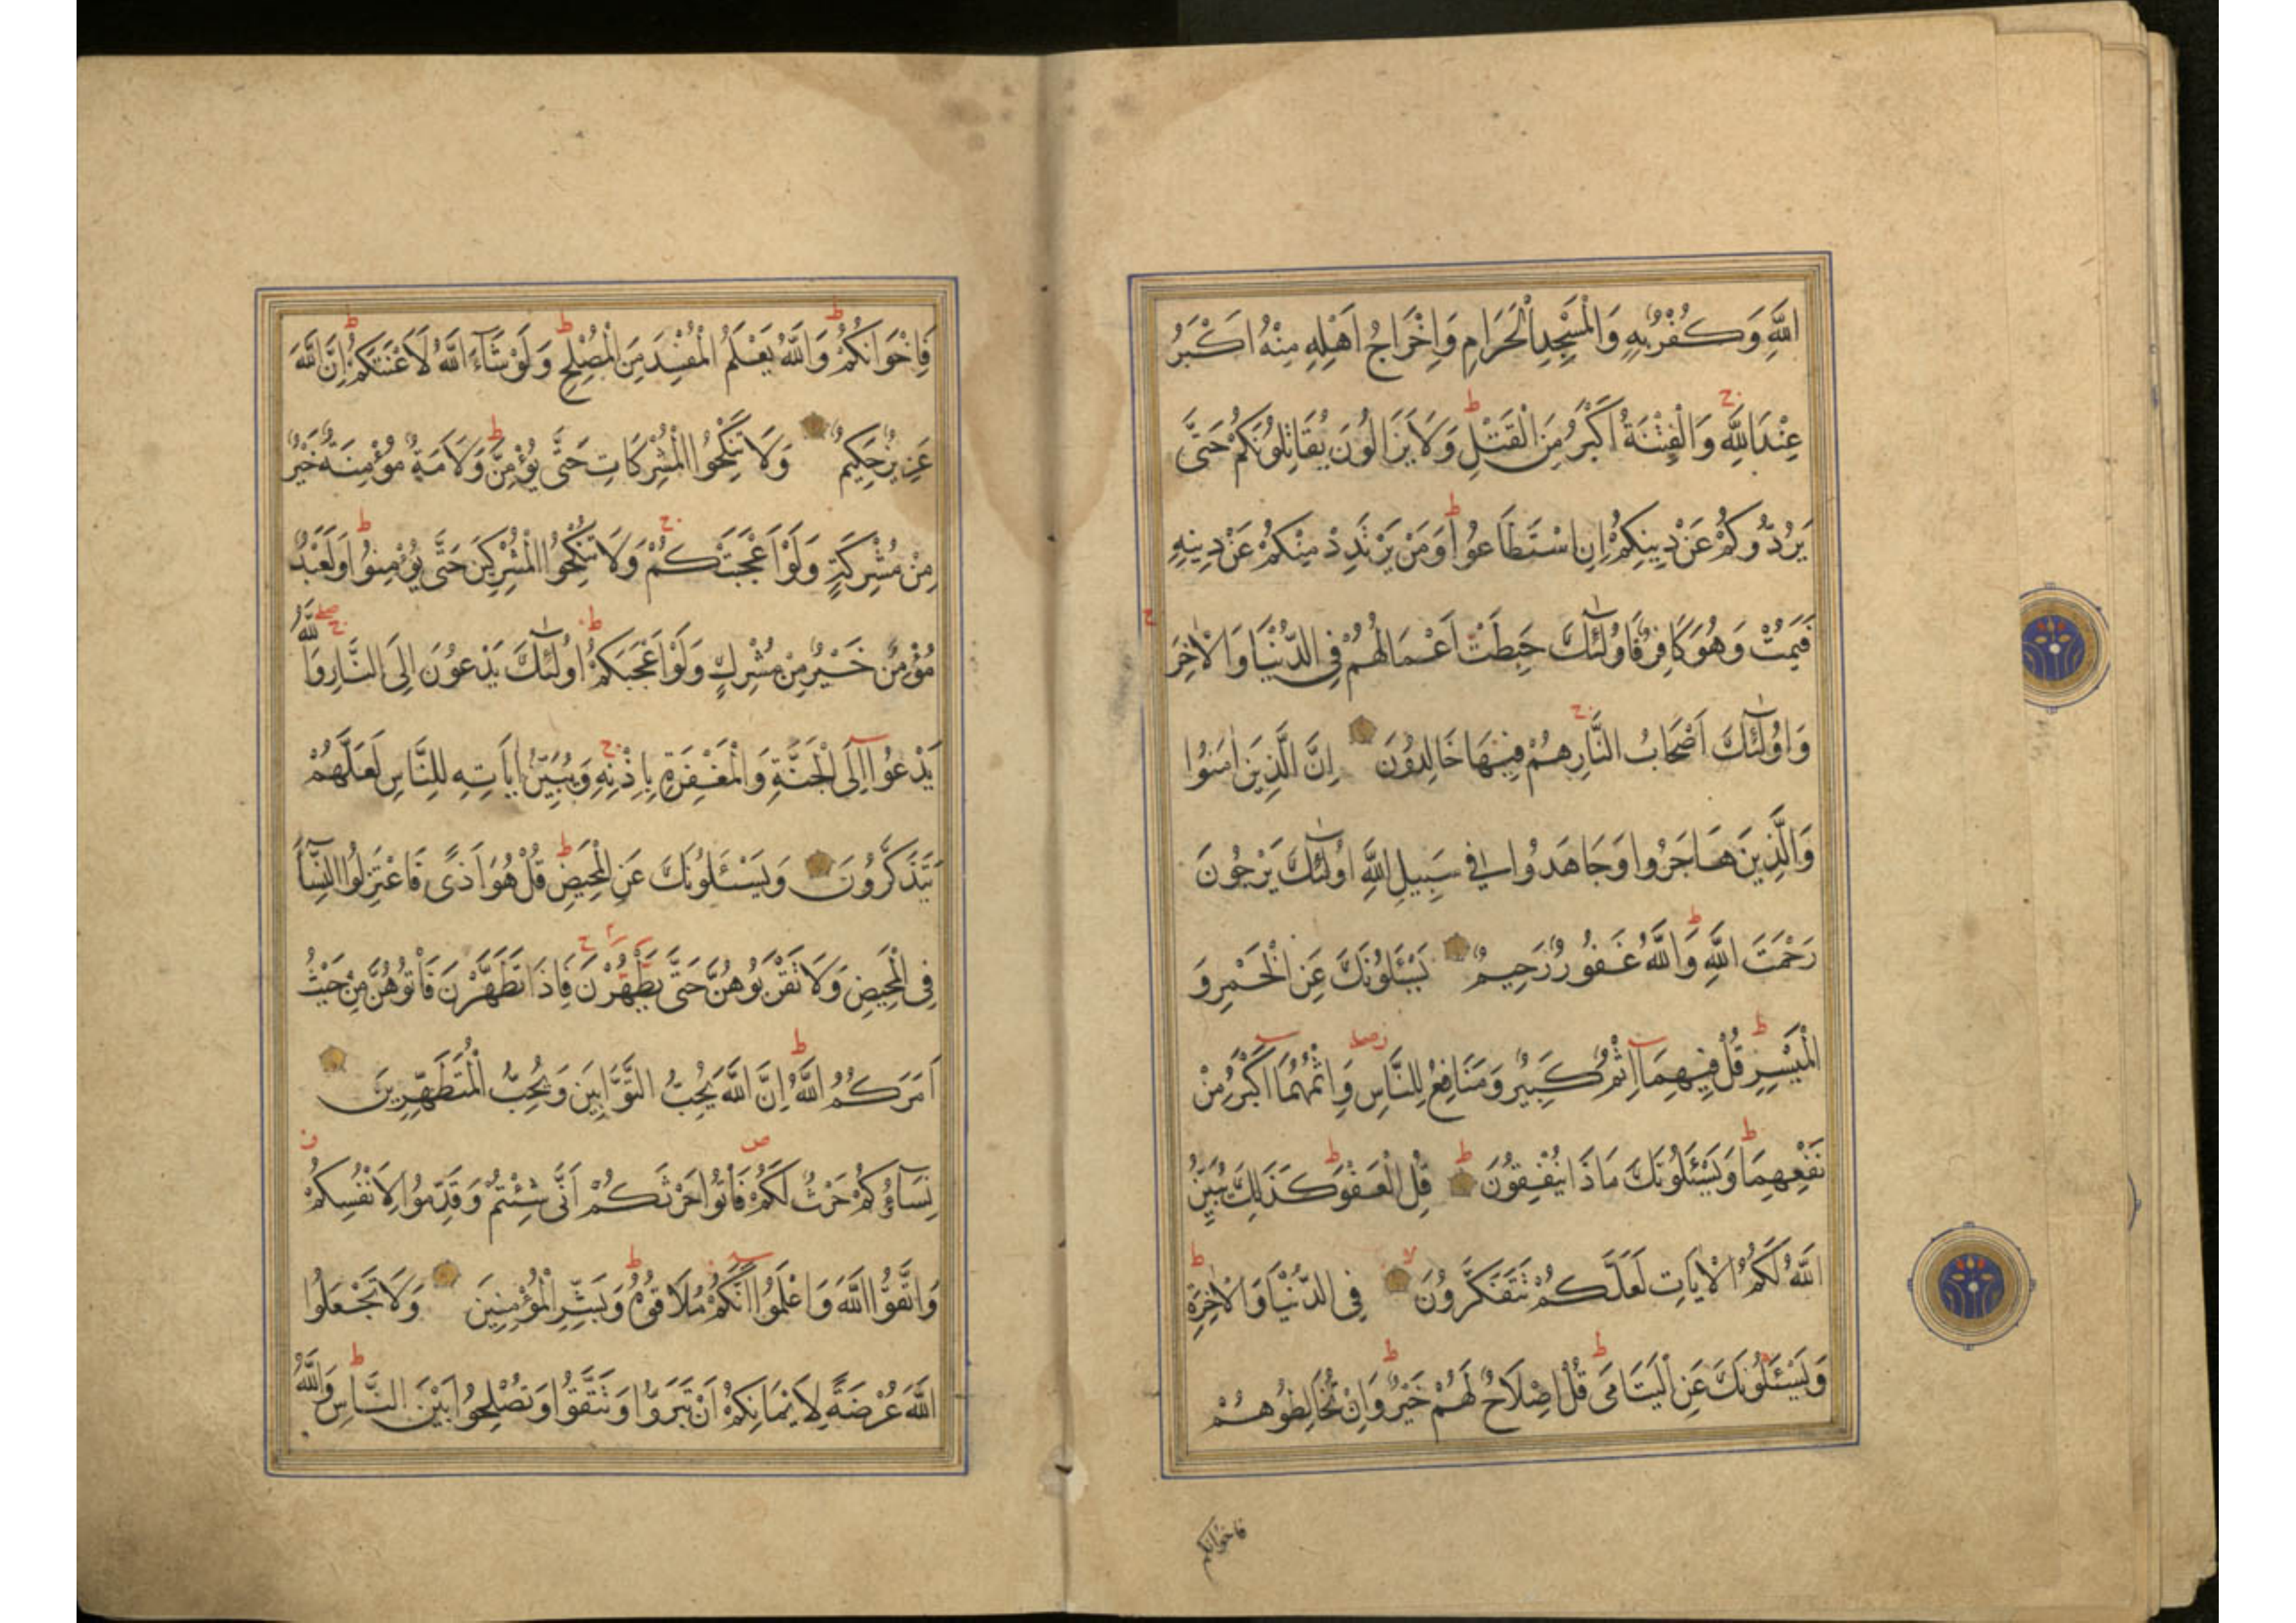 اللَّهِ وَكُفْرٌ بِهِ وَالْمَسْجِدِ الْحَرَامِ وَاِخْرَاجُ اَهْلِهِ مِنْهُ اَكْبَرُ
عِنْدَ اللَّهِ وَالْفِتْنَةُ اَكْبَرُ مِنَ الْقَتْلِ وَلَا يَزَالُونَ يُقَاتِلُونَكُمْ حَتَّى
يَرُدُّوكُمْ عَنْ دِينِكُمْ اِنِ اسْتَطَاعُوا وَمَنْ يَرْتَدِدْ مِنْكُمْ عَنْ دِينِهِ
فَيَمُتْ وَهُوَ كَافِرٌ فَاُولٰئِكَ حَبِطَتْ اَعْمَالُهُمْ فِي الدُّنْيَا وَالْاٰخِرَ
وَاُولٰئِكَ اَصْحَابُ النَّارِ هُمْ فِيهَا خَالِدُونَ اِنَّ الَّذِينَ اٰمَنُوا
وَالَّذِينَ هَاجَرُوا وَجَاهَدُوا فِي سَبِيلِ اللَّهِ اُولٰئِكَ يَرْجُونَ
رَحْمَتَ اللَّهِ وَاللَّهُ غَفُورٌ رَحِيمٌ يَسْئَلُونَكَ عَنِ الْخَمْرِ وَ
الْمَيْسِرِ قُلْ فِيهِمَا اِثْمٌ كَبِيرٌ وَمَنَافِعُ لِلنَّاسِ وَاِثْمُهُمَا اَكْبَرُ مِنْ
نَفْعِهِمَا وَيَسْئَلُونَكَ مَاذَا يُنْفِقُونَ قُلِ الْعَفْوَ كَذٰلِكَ يُبَيِّنُ
اللَّهُ لَكُمُ الْاٰيَاتِ لَعَلَّكُمْ تَتَفَكَّرُونَ فِي الدُّنْيَا وَالْاٰخِرَةِ
وَيَسْئَلُونَكَ عَنِ الْيَتَامَى قُلْ اِصْلَاحٌ لَهُمْ خَيْرٌ وَاِنْ تُخَالِطُوهُمْ
فاخوانكم
فَاِخْوَانُكُمْ وَاللَّهُ يَعْلَمُ الْمُفْسِدَ مِنَ الْمُصْلِحِ وَلَوْ شَاءَ اللَّهُ لَاَعْنَتَكُمْ اِنَّ اللَّهَ
عَزِيزٌ حَكِيمٌ وَلَا تَنْكِحُوا الْمُشْرِكَاتِ حَتَّى يُؤْمِنَّ وَلَاَمَةٌ مُؤْمِنَةٌ خَيْرٌ
مِنْ مُشْرِكَةٍ وَلَوْ اَعْجَبَتْكُمْ وَلَا تُنْكِحُوا الْمُشْرِكِينَ حَتَّى يُؤْمِنُوا وَلَعَبْدٌ
مُؤْمِنٌ خَيْرٌ مِنْ مُشْرِكٍ وَلَوْ اَعْجَبَكُمْ اُولٰئِكَ يَدْعُونَ اِلَى النَّارِ وَاللَّهُ
يَدْعُوا اِلَى الْجَنَّةِ وَالْمَغْفِرَةِ بِاِذْنِهِ وَيُبَيِّنُ اٰيَاتِهِ لِلنَّاسِ لَعَلَّهُمْ
يَتَذَكَّرُونَ وَيَسْئَلُونَكَ عَنِ الْمَحِيضِ قُلْ هُوَ اَذًى فَاعْتَزِلُوا النِّسَآءَ
فِي الْمَحِيضِ وَلَا تَقْرَبُوهُنَّ حَتَّى يَطْهُرْنَ فَاِذَا تَطَهَّرْنَ فَاْتُوهُنَّ مِنْ حَيْثُ
اَمَرَكُمُ اللَّهُ اِنَّ اللَّهَ يُحِبُّ التَّوَّابِينَ وَيُحِبُّ الْمُتَطَهِّرِينَ
نِسَآؤُكُمْ حَرْثٌ لَكُمْ فَاْتُوا حَرْثَكُمْ اَنَّى شِئْتُمْ وَقَدِّمُوا لِاَنْفُسِكُمْ
وَاتَّقُوا اللَّهَ وَاعْلَمُوا اَنَّكُمْ مُلَاقُوهُ وَبَشِّرِ الْمُؤْمِنِينَ وَلَا تَجْعَلُوا
اللَّهَ عُرْضَةً لِاَيْمَانِكُمْ اَنْ تَبَرُّوا وَتَتَّقُوا وَتُصْلِحُوا بَيْنَ النَّاسِ وَاللَّهُ